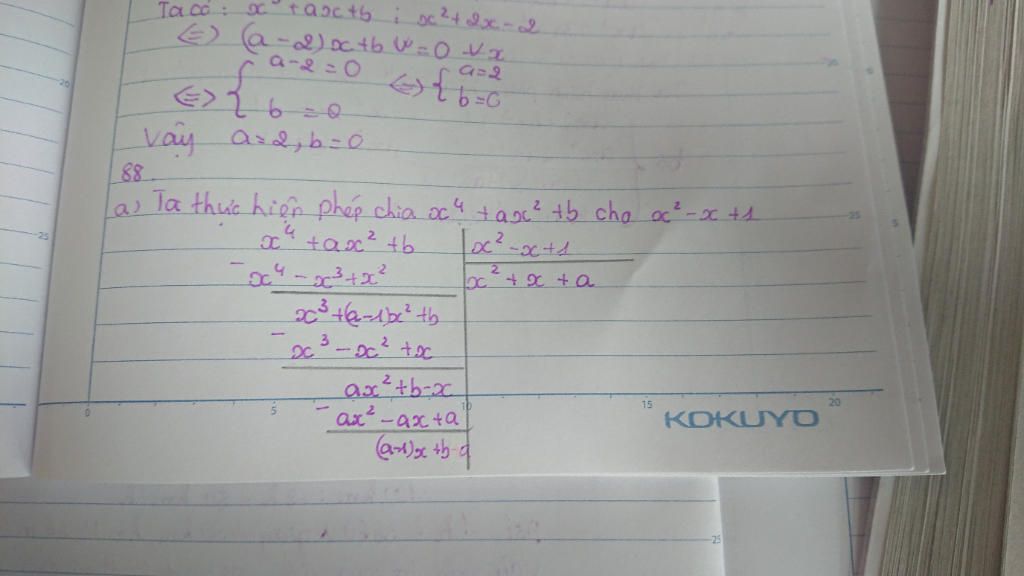 Ta có : x³ + ax + b ⋮ x² + 2x - 2
<=> (a - 2)x + b = 0 ∀x
<=> { a - 2 = 0 <=> { a = 2
b = 0 b = 0
Vậy a = 2, b = 0
88.
a) Ta thực hiện phép chia x⁴ + ax² + b cho x² - x + 1
x⁴ + ax² + b | x² - x + 1
- x⁴ - x³ + x² | x² + x + a
x³ + (a - 1)x² + b
- x³ - x² + x
ax² + b - x
- ax² - ax + a
(a-1)x + b - a
0 5 10 15 20
KOKUYO
25
25
20
25
5